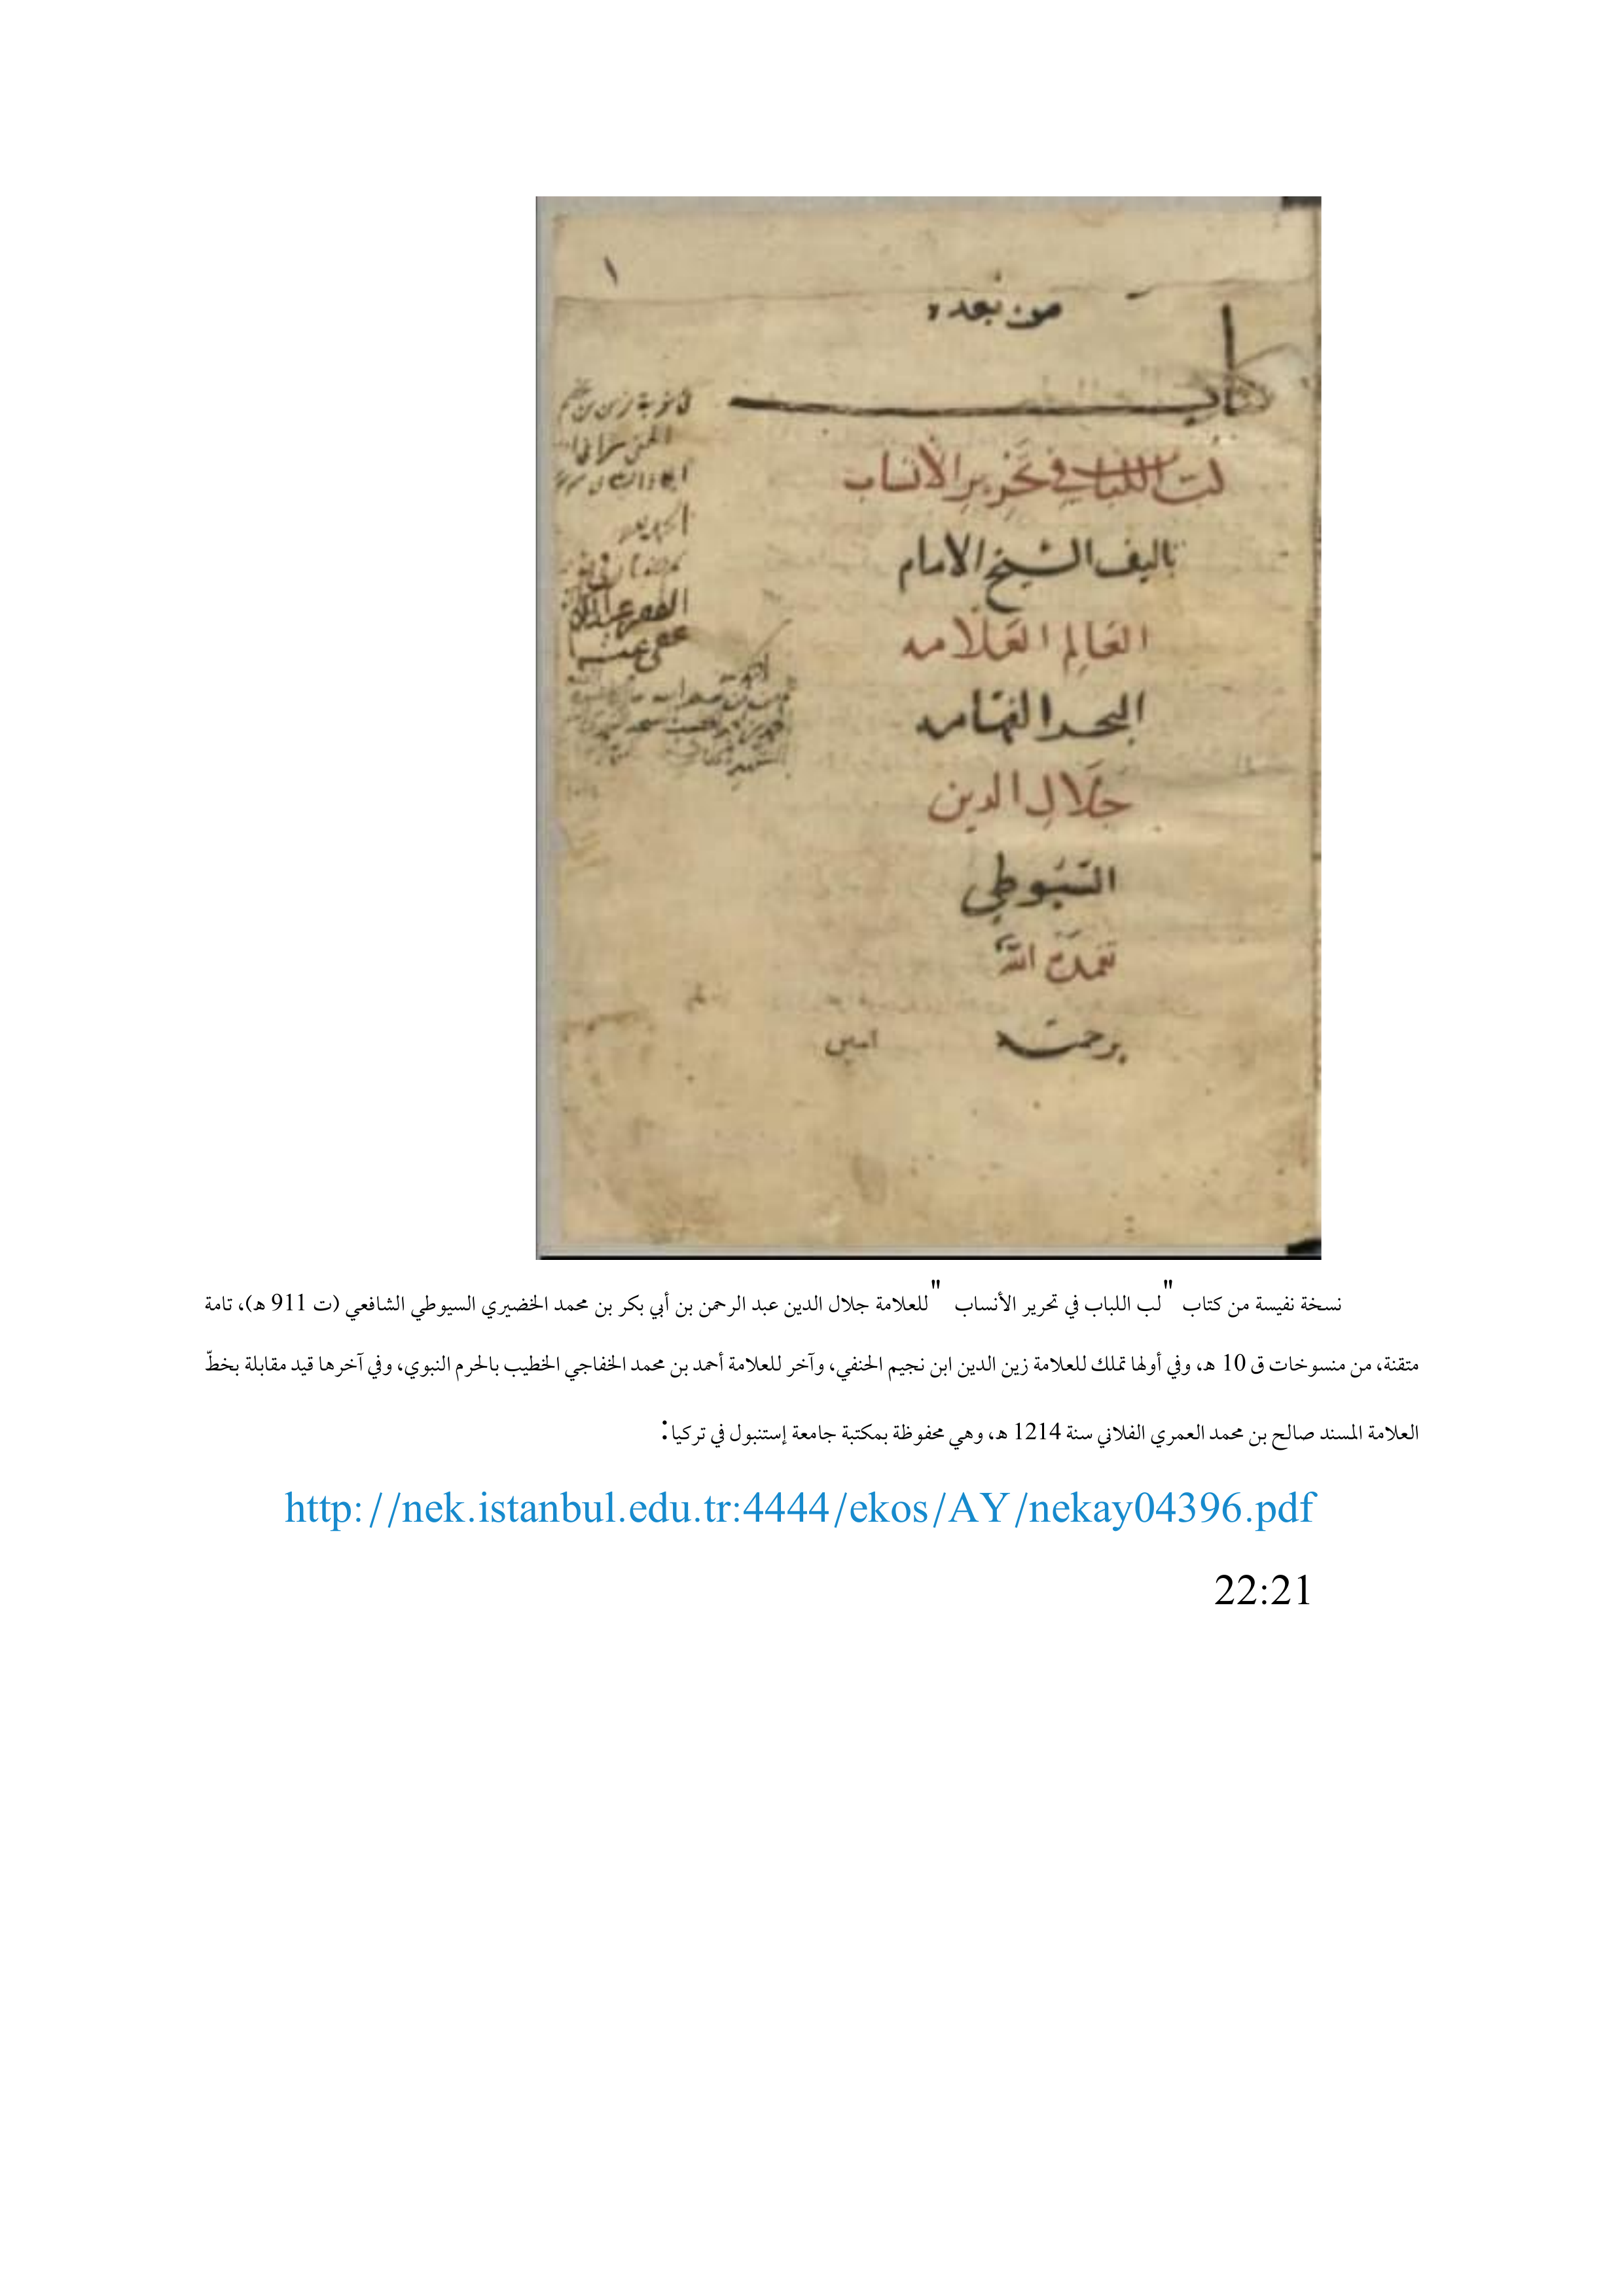 ١
من بعده
كتاب
لب اللباب في تحرير الأنساب
تاليف الشيخ الامام
العالم العلامه
البحر الفهامه
جلال الدين
السيوطي
تغمده الله
برحمته امين
في نوبة زين بن نجيم
الحنفي
الفقير
عفي عنه
نسخة نفيسة من كتاب "لب اللباب في تحرير الأنساب" للعلامة جلال الدين عبد الرحمن بن أبي بكر بن محمد الخضيري السيوطي الشافعي (ت 911 هـ)، تامة
متقنة، من منسوخات ق 10 هـ، وفي أولها تملك للعلامة زين الدين ابن نجيم الحنفي، وآخر للعلامة أحمد بن محمد الخفاجي الخطيب بالحرم النبوي، وفي آخرها قيد مقابلة بخطّ
العلامة المسند صالح بن محمد العمري الفلاني سنة 1214 هـ، وهي محفوظة بمكتبة جامعة إستنبول في تركيا:
http://nek.istanbul.edu.tr:4444/ekos/AY/nekay04396.pdf
22:21